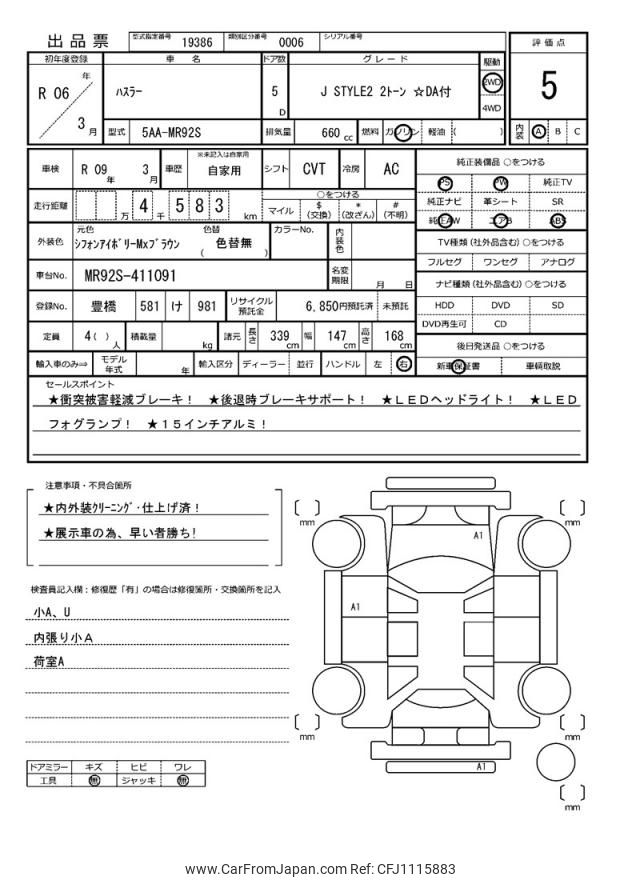 出品票 型式指定番号 19386 類別区分番号 0006 シリアル番号
初年度登録 車名 ドア数 グレード 駆動 評価点
R 06 年 3 月 ハスラー 5 D J STYLE2 2トーン ☆DA付 2WD 4WD 5
型式 5AA-MR92S 排気量 660 cc 燃料 ガソリン 軽油 ( ) 内装 A B C
車検 R 09 年 3 月 車歴 ※未記入は自家用 自家用 シフト CVT 冷房 AC
純正装備品 ○をつける
PS PW 純正TV
純正ナビ 革シート SR
純正AW エアB ABS
走行距離 万 4 千 5 8 3 km ○をつける
マイル $(交換) *(改ざん) #(不明)
外装色 元色 シフォンアイボリーMxブラウン 色替 ( 色替無 ) カラーNo. 内装色
TV種類 (社外品含む) ○をつける
フルセグ ワンセグ アナログ
車台No. MR92S-411091 名変期限 月 日
ナビ種類 (社外品含む) ○をつける
HDD DVD SD
DVD再生可 CD
登録No. 豊橋 581 け 981 リサイクル預託金 6,850円預託済 未預託
定員 4( ) 人 積載量 kg 諸元 長さ 339 cm 幅 147 cm 高さ 168 cm
後日発送品 ○をつける
新車保証書 車輌取説
輸入車のみ⇒ モデル年式 年 輸入区分 ディーラー 並行 ハンドル 左 右
セールスポイント
★衝突被害軽減ブレーキ! ★後退時ブレーキサポート! ★LEDヘッドライト! ★LED
フォグランプ! ★15インチアルミ!
注意事項・不具合箇所
★内外装クリーニング・仕上げ済!
★展示車の為、早い者勝ち!
検査員記入欄:修復歴「有」の場合は修復箇所・交換箇所を記入
小A、U
内張り小A
荷室A
ドアミラー キズ ヒビ ワレ
工具 無 ジャッキ 無
[ ] mm [ ] mm
A1
A1
[ ] mm [ ] mm
A1
[ ] mm
www.CarFromJapan.com Ref: CFJ1115883